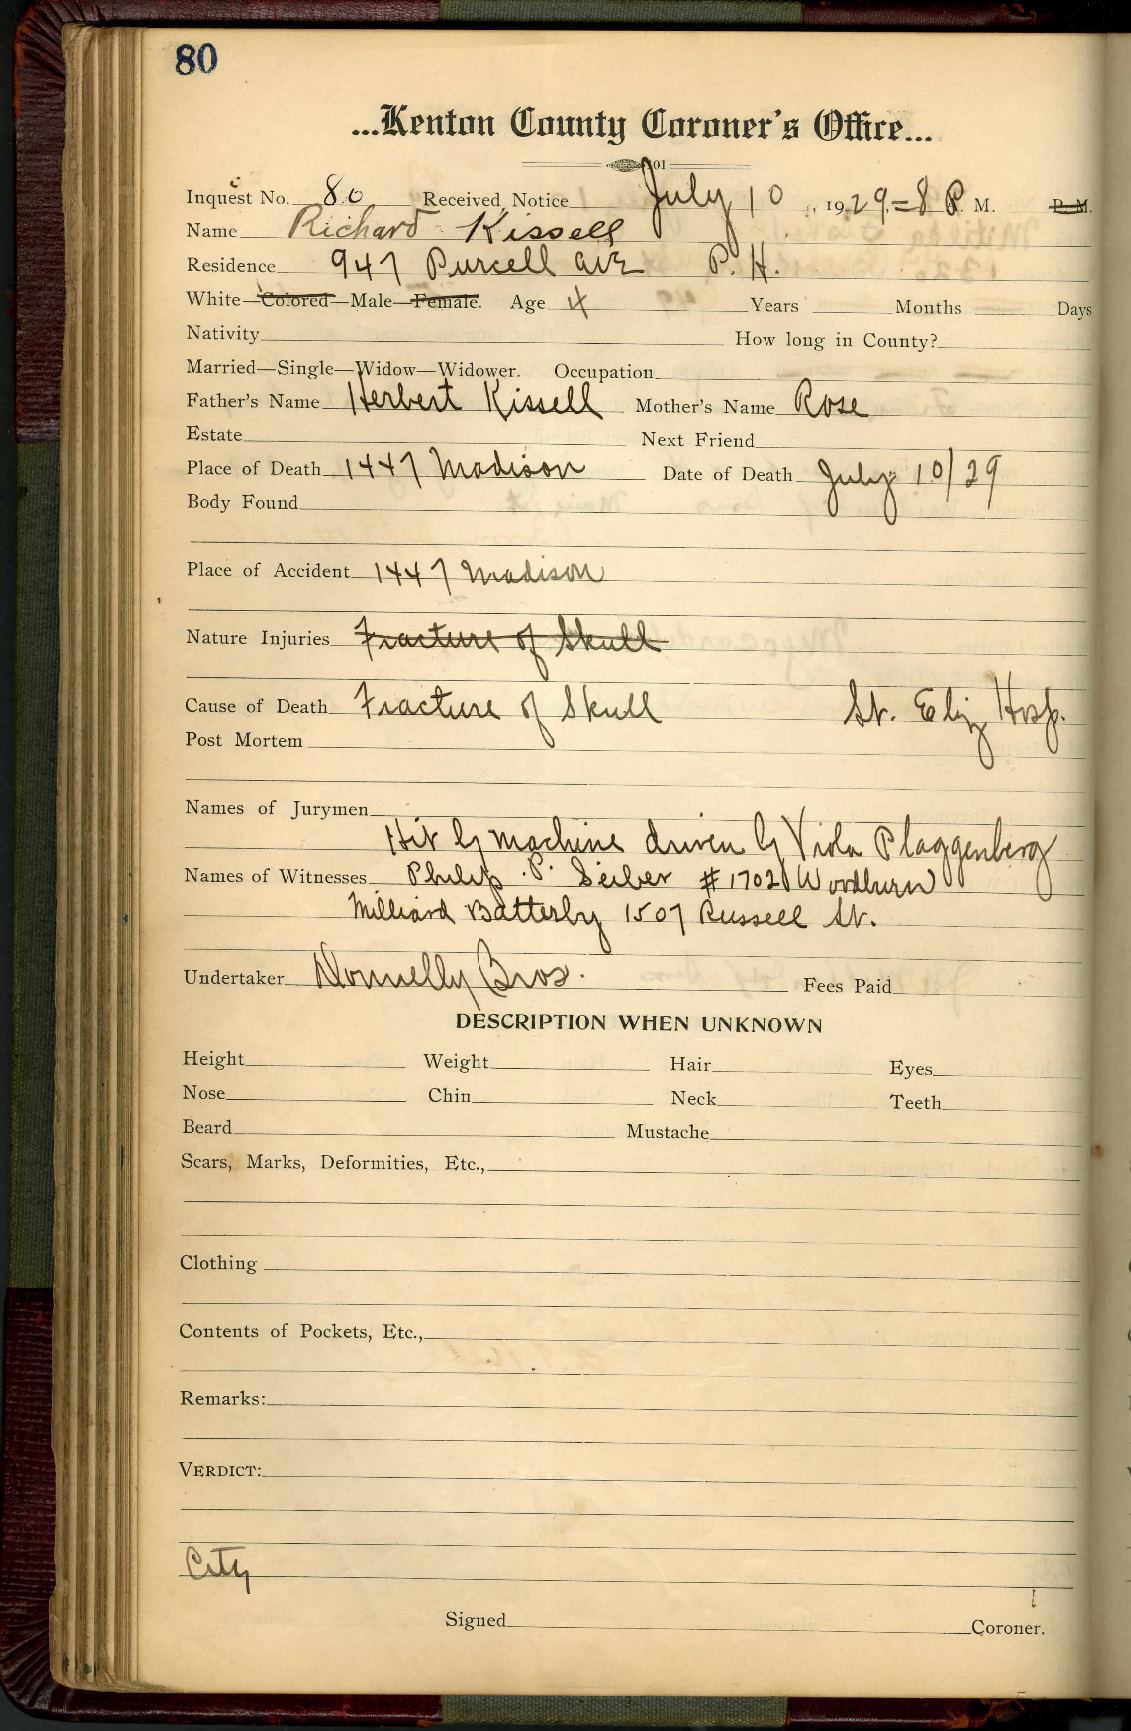 80
...Kenton County Coroner's Office...
Inquest No. 80 Received Notice July 10, 1929 = 8 P. M. P. M.
Name Richard Kissell
Residence 947 Purcell ave P. H.
White—Colored—Male—Female. Age 4 Years Months Days
Nativity How long in County?
Married—Single—Widow—Widower. Occupation
Father's Name Herbert Kissell Mother's Name Rose
Estate Next Friend
Place of Death 1447 Madison Date of Death July 10/29
Body Found
Place of Accident 1447 Madison
Nature Injuries Fracture of Skull
Cause of Death Fracture of Skull St. Eliz Hosp.
Post Mortem
Names of Jurymen
Hit by machine driven by Viola Plaggenberg
Names of Witnesses Philip P. Seiber #1702 Woodburn
Milliard Batterby 1507 Russell St.
Undertaker Donnelly Bros. Fees Paid
DESCRIPTION WHEN UNKNOWN
Height Weight Hair Eyes
Nose Chin Neck Teeth
Beard Mustache
Scars, Marks, Deformities, Etc.,
Clothing
Contents of Pockets, Etc.,
Remarks:
VERDICT:
City
Signed Coroner.